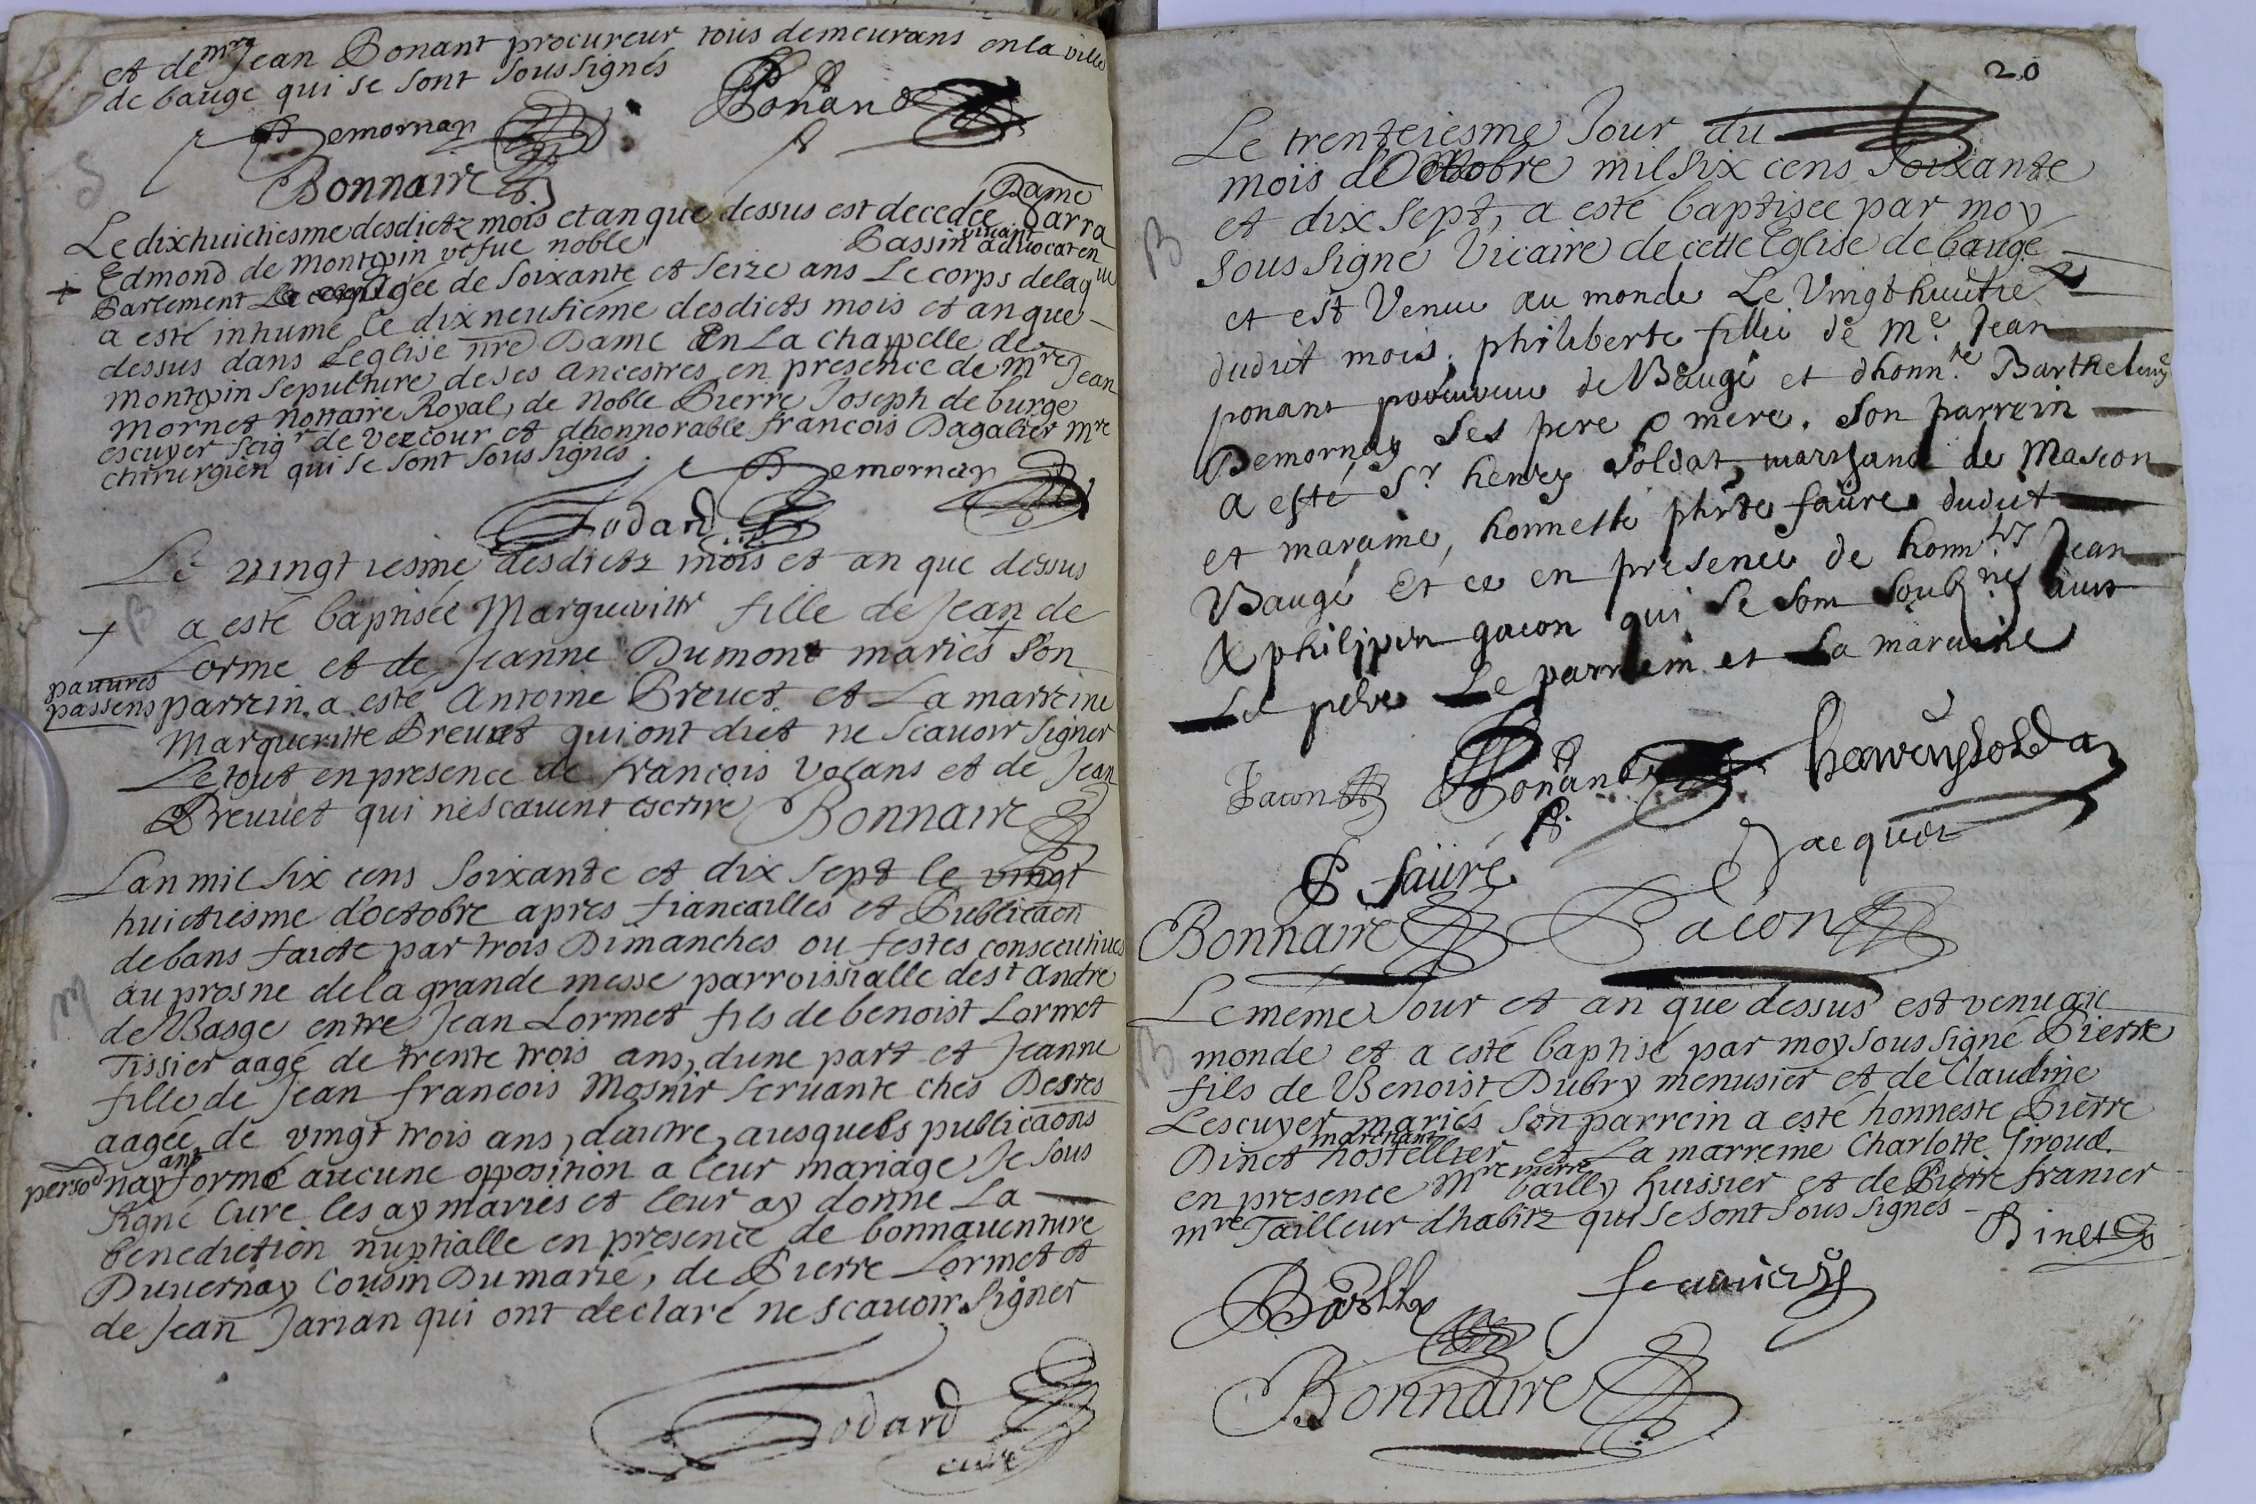 et de mre Jean Ponant procureur tous demeurans en la ville
de bauge qui se sont soussignés
Demornay
Ponand
Bonnaire
Le dixhuictiesme desdictz mois et an que dessus est decedée Dame Sarra
Edmond de Montpin vefue noble Bassin vivant advocat en
Parlement agée de soixante et seize ans Le corps de laq
a esté inhumé le dix neufiéme desdicts mois et an que
dessus dans Leglise nre Dame En La Chappelle de
Montpin sepulture de ses Ancestres en presence de mre Jean
Mornet Nottaire Royal, de Noble Pierre Joseph de burge
escuyer seigr de Vercour et dhonnorable francois Dagalier mre
chirurgien qui se sont sous signés.
Demornay
Godard
Le vingtiesme desdictz mois et an que dessus
B
a esté baptisée Margueritte fille de Jean de
Lorme et de Jeanne Dumont mariés son
pauures
passens
parrein a esté Antoine Preuet et La marreine
Margueritte Preuuet qui ont dict ne scauoir signer
Le tout en presence de francois Volans et de Jean
Preuuet qui ne scauent escrire Bonnaire
Lan mil six cens soixante et dix sept le vingt
huictiesme d'octobre apres fiancailles et Publicaon
de bans faicte par trois Dimanches ou festes consecutiues
au prosne de la grande messe parroissialle de st Andre
M
de Basge entre Jean Lormet fils de benoist Lormet
Tissier aagé de trente trois ans, d'une part et Jeanne
fille de Jean francois Mosnir seruante ches Destres
aagée de vingt trois ans, dautre, ausquels publicaons
persoe nayant formé aucune opposition a leur mariage, Je sous
signé Curé les ay mariés et leur ay donné La
benediction nuptialle en presence de bonnauenture
Duuernay Cousin Du marié, de Pierre Lormet et
de Jean Jarian qui ont declaré ne scauoir signer
Godard
curé
20
Le trenteiesme Jour du
mois de Octobre mil six cens soixante
B
et dix sept, a esté baptisée par moy
sous signé Vicaire de cette Eglise de baugé
et est Venue au monde Le Vingt huictie
dudit mois, philiberte fille de Me Jean
ponant procureur de Baugé et dhonn.te Barthelemy
Demornay ses pere & mere. Son parrein
a esté Sr henry Soldat, marchand de Mascon
et maraine, honneste phirte faure dudit
Baugé Et ce en presence de honntes Jean
& philippin gacon qui se sont soubznes avec
Le pere Le parrein et La maraine
Jacon
Ponand
henry soldat
Jacquet
P faure
Bonnaire
Gacon
Le méme Jour et an que dessus est venu au
B
monde et a esté baptisé par moy soussigné Pierre
fils de Benoist Dubry menusier et de Claudine
Lescuyer mariés son parrein a esté honneste Pierre
Dinet marchant hostellier et La marreine Charlotte Giroud.
en presence Mre pierre bailly huissier et de Pierre franier
mre Tailleur d'habitz qui se sont sous signés
Binet
Bailly
Bonnaire